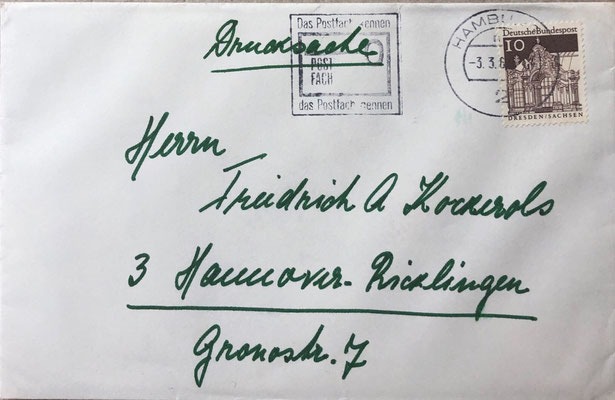 Das Postfach kennen
POST
FACH
das Postfach nennen
Drucksache
HAMBU
-3.3.6
2
Deutsche Bundespost
10
DRESDEN/SACHSEN
Herrn
Friedrich A Kockerols
3 Hannover-Ricklingen
Gronostr. 7